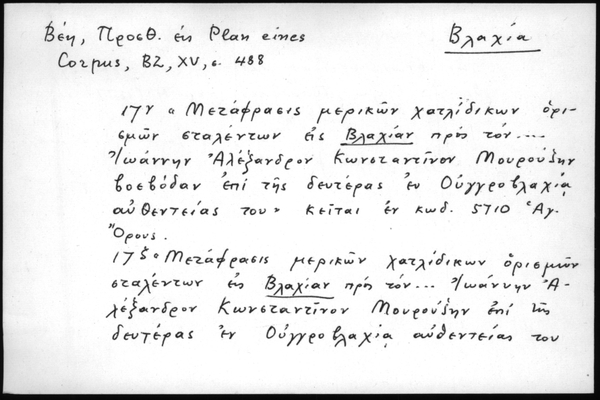 Βέη, Προσθ. εἰς Plan eines
Corpus, BZ, XV, σ. 488
Βλαχία
17γ « Μετάφρασις μερικῶν χατλίδικων ὁρι-
σμῶν σταλέντων εἰς Βλαχίαν πρὸς τὸν....
Ἰωάννην Ἀλέξανδρον Κωνσταντῖνον Μουρούζην
βοεβόδαν ἐπὶ τῆς δευτέρας ἐν Οὐγγροβλαχίᾳ
αὐθεντείας του» κεῖται ἐν κωδ. 5710 Ἁγ.
Ὄρους.
17ζ « Μετάφρασις μερικῶν χατλίδικων ὁρισμῶν
σταλέντων εἰς Βλαχίαν πρὸς τὸν... Ἰωάννην Ἀ-
λέξανδρον Κωνσταντῖνον Μουρούζην ἐπὶ τῆς
δευτέρας ἐν Οὐγγροβλαχίᾳ αὐθεντείας του